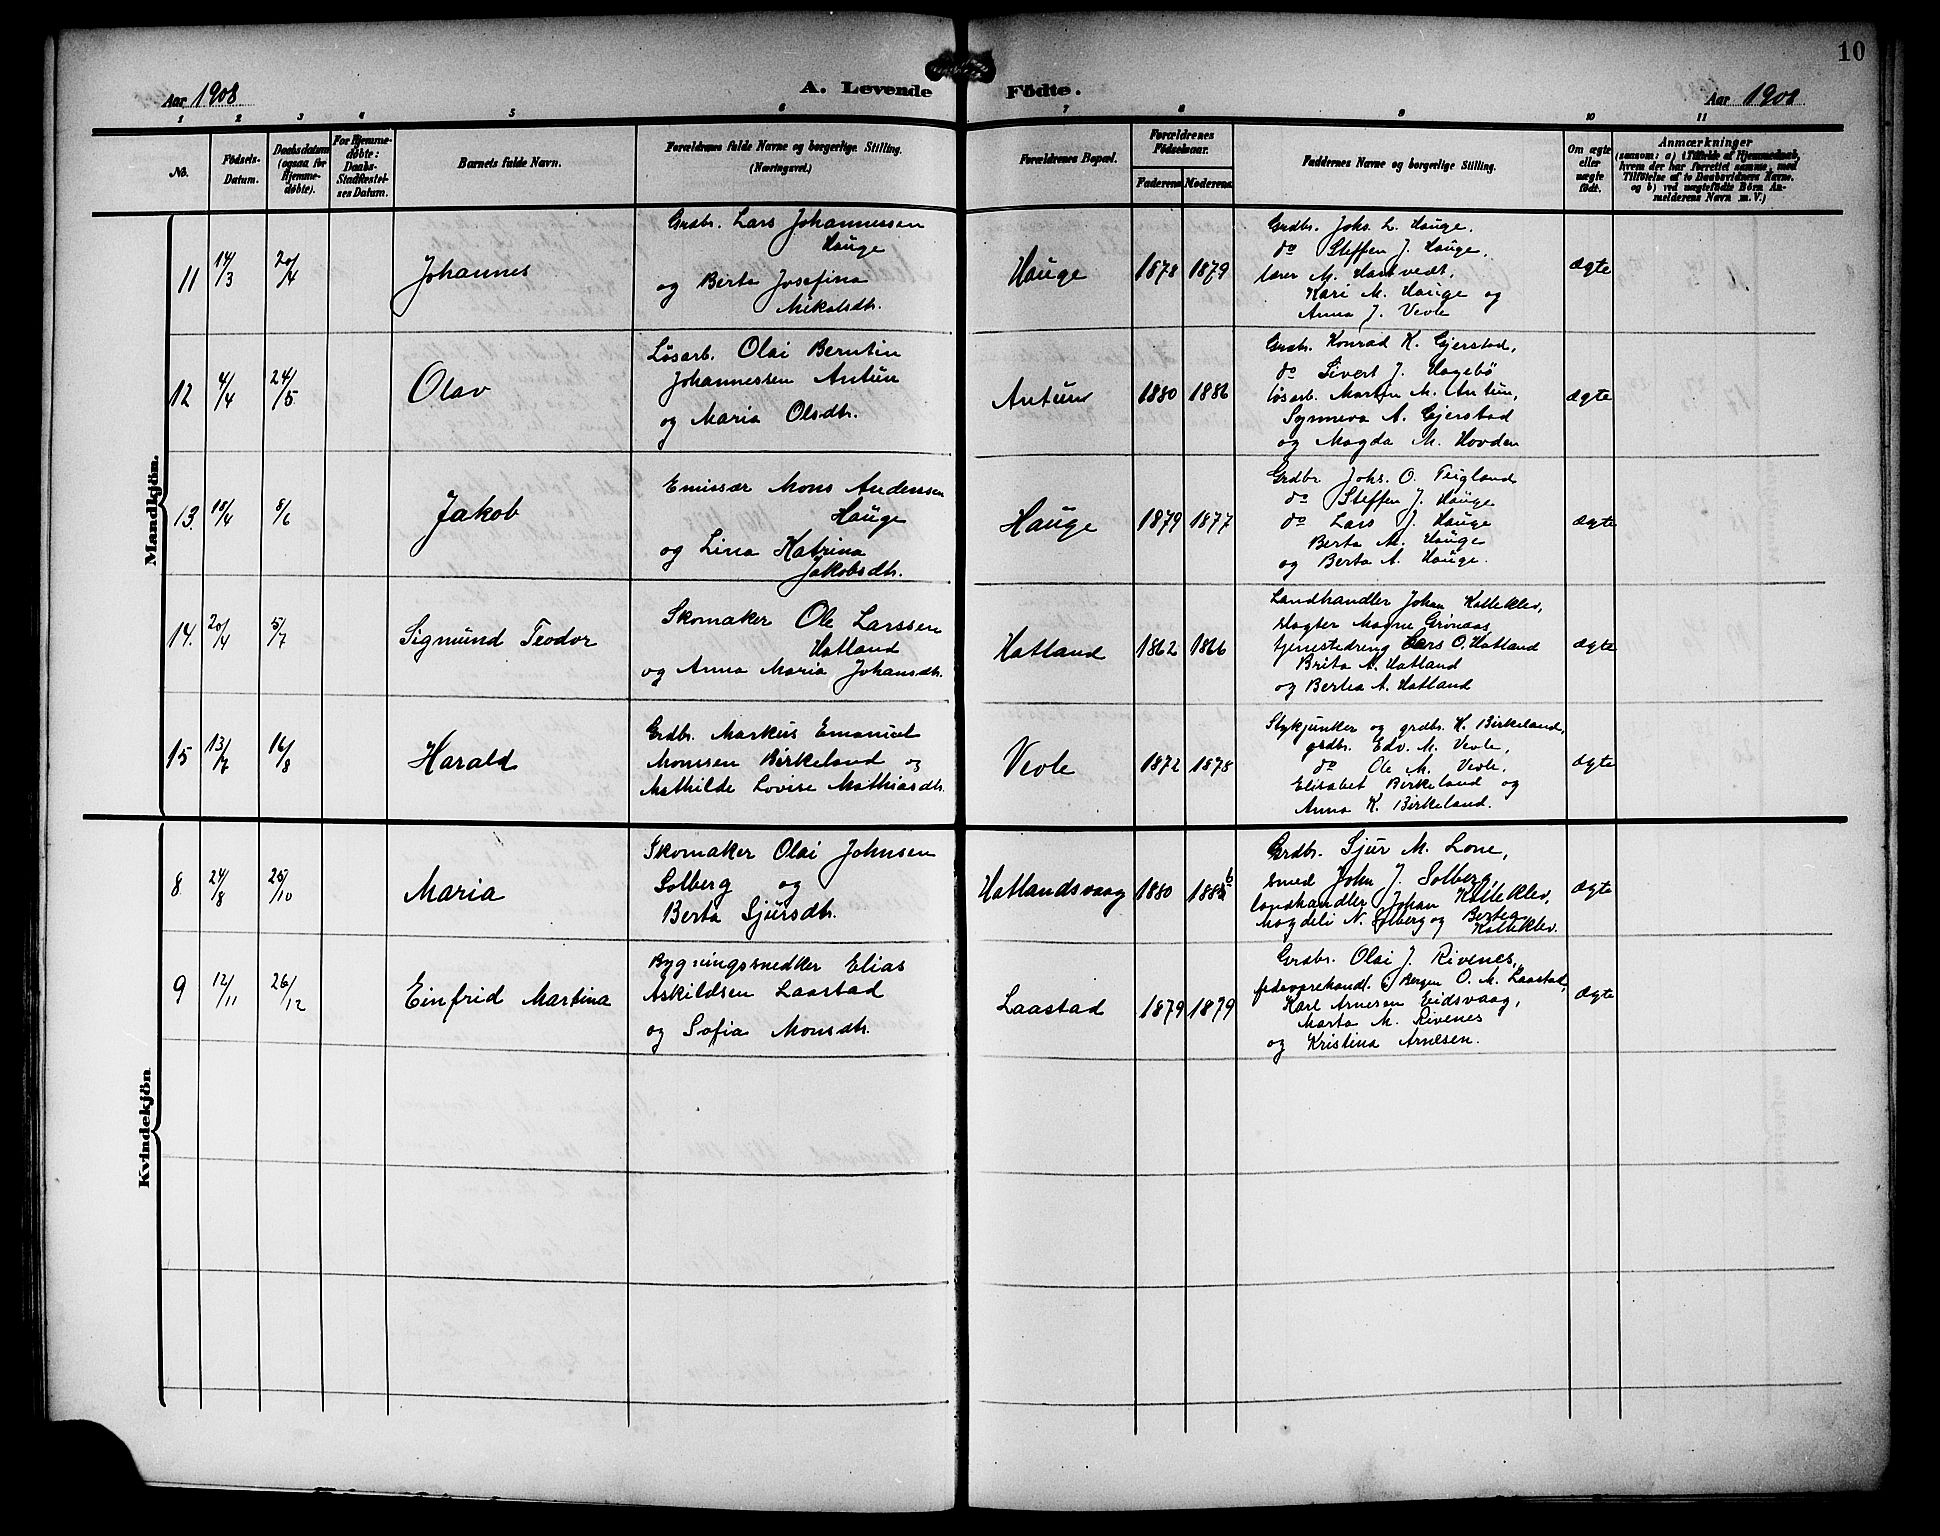 10
Aar 1908
A. Levende Fødte.
Aar 1908
1 2 3 4 5 6 7 8 9 10 11
No.
Fødsels-
Datum.
Daabsdatum
(ogsaa for
Hjemme-
døbte).
For Hjemme-
døbte:
Daabs-
Stadfæstel-
ses Datum.
Barnets fulde Navn.
Forældrenes fulde Navne og borgerlige Stilling.
(Næringsvei.)
Forældrenes Bopæl.
Forældrenes
Fødselsaar.
Faderens Moderens
Faddernes Navne og borgerlige Stilling.
Om ægte
eller
uægte
født.
Anmærkninger
(saasom: a) i Tilfælde af Hjemmedaab,
hvem der har forrettet samme, med
Tilføielse af to Daabsvidners Navne,
og b) ved uægtefødte Børn An-
melderens Navn m. V.)
Mandkjön.
11
14/3
20/4
Johannes
Grdbr. Lars Johannessen
Hauge
og Berta Josefina
Mikalsdtr.
Hauge
1878 1879
Grdbr. Johs. L. Hauge,
do Steffen J. Hauge,
lærer M. Hartvedt,
Kari M. Hauge og
Anna J. Vevle
Ægte
12
4/4
24/5
Olav
Løsarb. Olai Berntin
Johannessen Antun
og Maria Olsdtr.
Antun
1880 1886
Grdbr. Konrad K. Gjerstad,
do Sivert J. Hagebø
løsarb. Martin M. Antun,
Synneva A. Gjerstad
og Magda M. Hovden
Ægte
13.
18/4
8/6
Jakob
Emissær Mons Anderssen
Hauge
og Lina Katrina
Jakobsdtr.
Hauge
1879 1877
Grdbr. Johs. O. Teigland
do Steffen J. Hauge
do Lars J. Hauge
Berta M. Hauge
og Berta A. Hauge.
Ægte
14.
20/4
5/7
Sigmund Teodor
Skomaker Ole Larssen
Hatland
og Anna Maria Johansdtr.
Hatland
1862 1866
Landhandler Johan Kalleklev,
slagter Magne Grønaas
tjenestedreng Lars O. Hatland
Brita A. Hatland
og Bertea A. Hatland
Ægte
15
13/7
16/8
Harald
Grdbr. Markus Emanuel
Monssen Birkeland og
Mathilde Lovise Mathiasdtr.
Vevle
1872 1878
Stykjunker og grdbr. K. Birkeland,
grdbr. Edv. M. Vevle,
do Ole M. Vevle,
Elisabet Birkeland og
Anna K. Birkeland.
Ægte
Kvindekjön
8
24/8
25/10
Maria
Skomaker Olai Johnsen
Solberg og
Berta Sjursdtr.
Hatlandsvaag
1880 1886
Grdbr. Sjur M. Lone,
smed John J. Solberg,
landhandler Johan Kalleklev,
Magdeli N. Solberg og Bertea
Kalleklev.
Ægte
9
12/11
26/12
Einfrid Martina
Bygningssnedker Elias
Askildsen Laastad
og Sofia Monsdtr.
Laastad
1879 1879
Grdbr. Olai J. Rivenes,
fedevarehandl. i Bergen O. M. Laastad,
Karl Arnesen Eidsvaag,
Marta M. Rivenes
og Kristina Arnesen.
Ægte